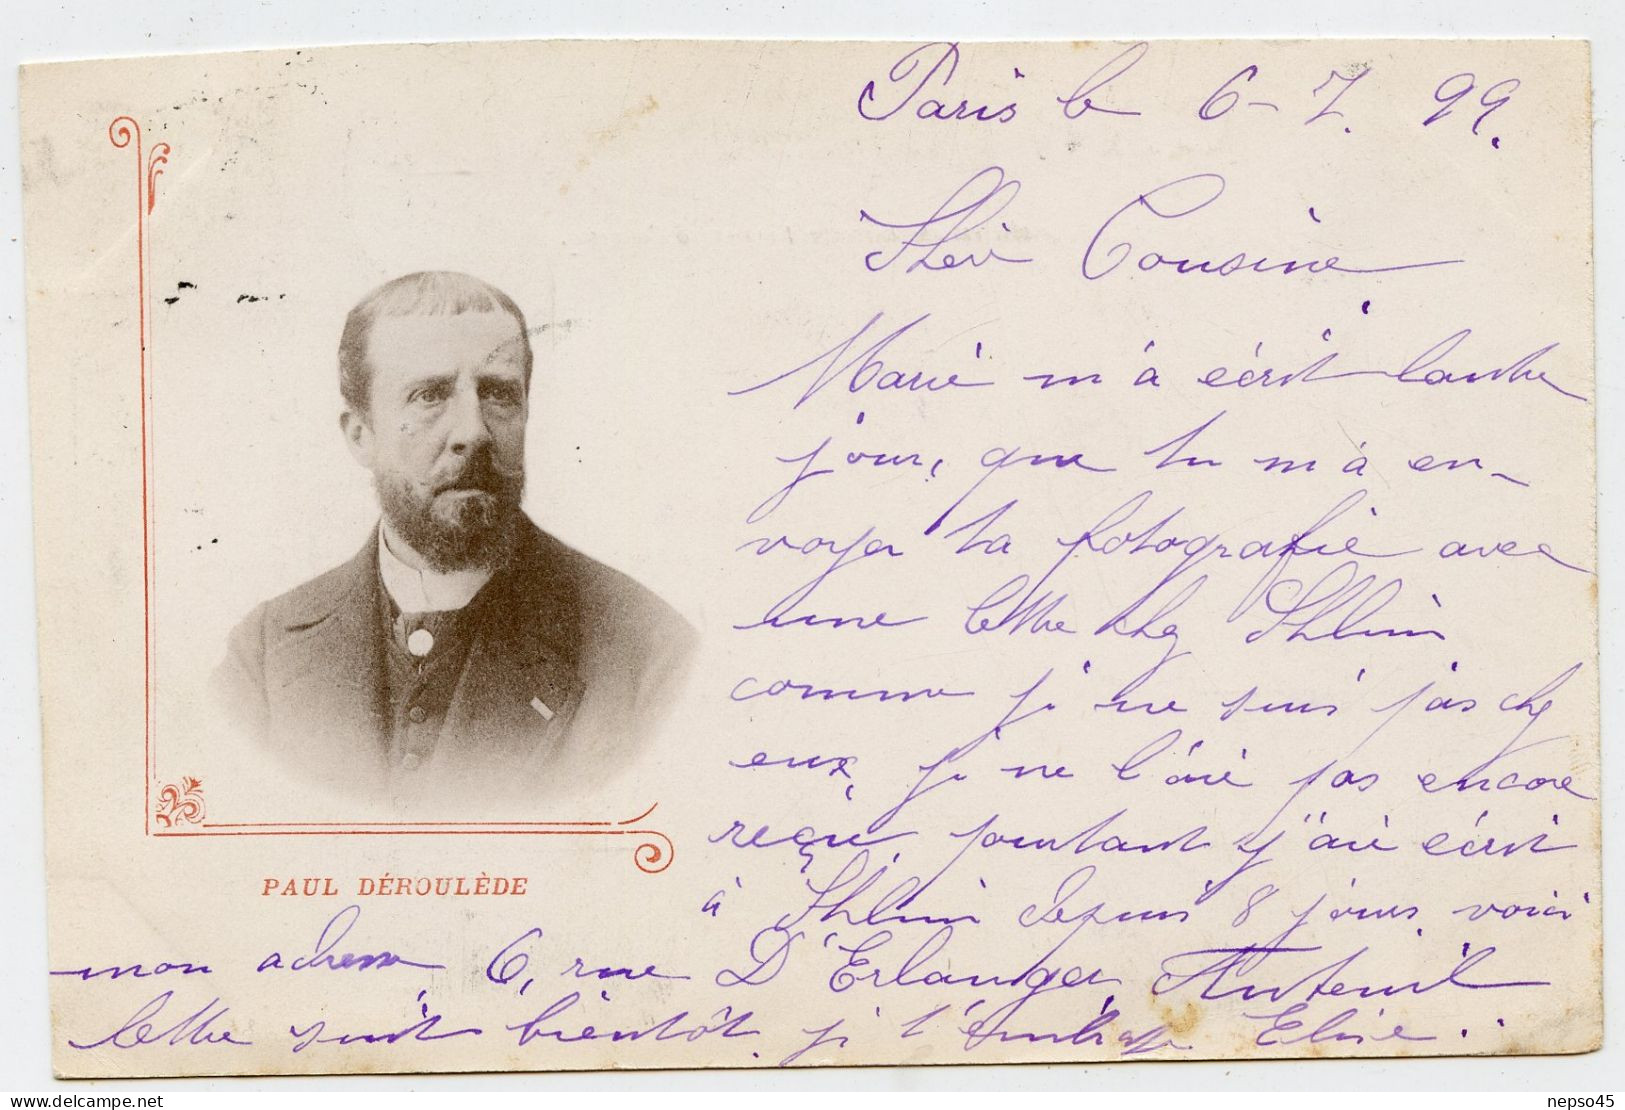 Paris le 6-7. 99.
Chère Cousine
Marie m'a écrit lautre
jour, que tu m'a en-
voyer ta fotografie avec
une lettre chez
comme je ne suis pas chez
eux, je ne l'ai pas encore
reçu, pourtant j'ai écrit
à depuis 8 jours, voici
mon adresse, 6, rue D'Erlanger Auteuil
lettre suit bientôt, je t'embrasse Elise..
PAUL DÉROULÈDE
delcampe.net
nepso45